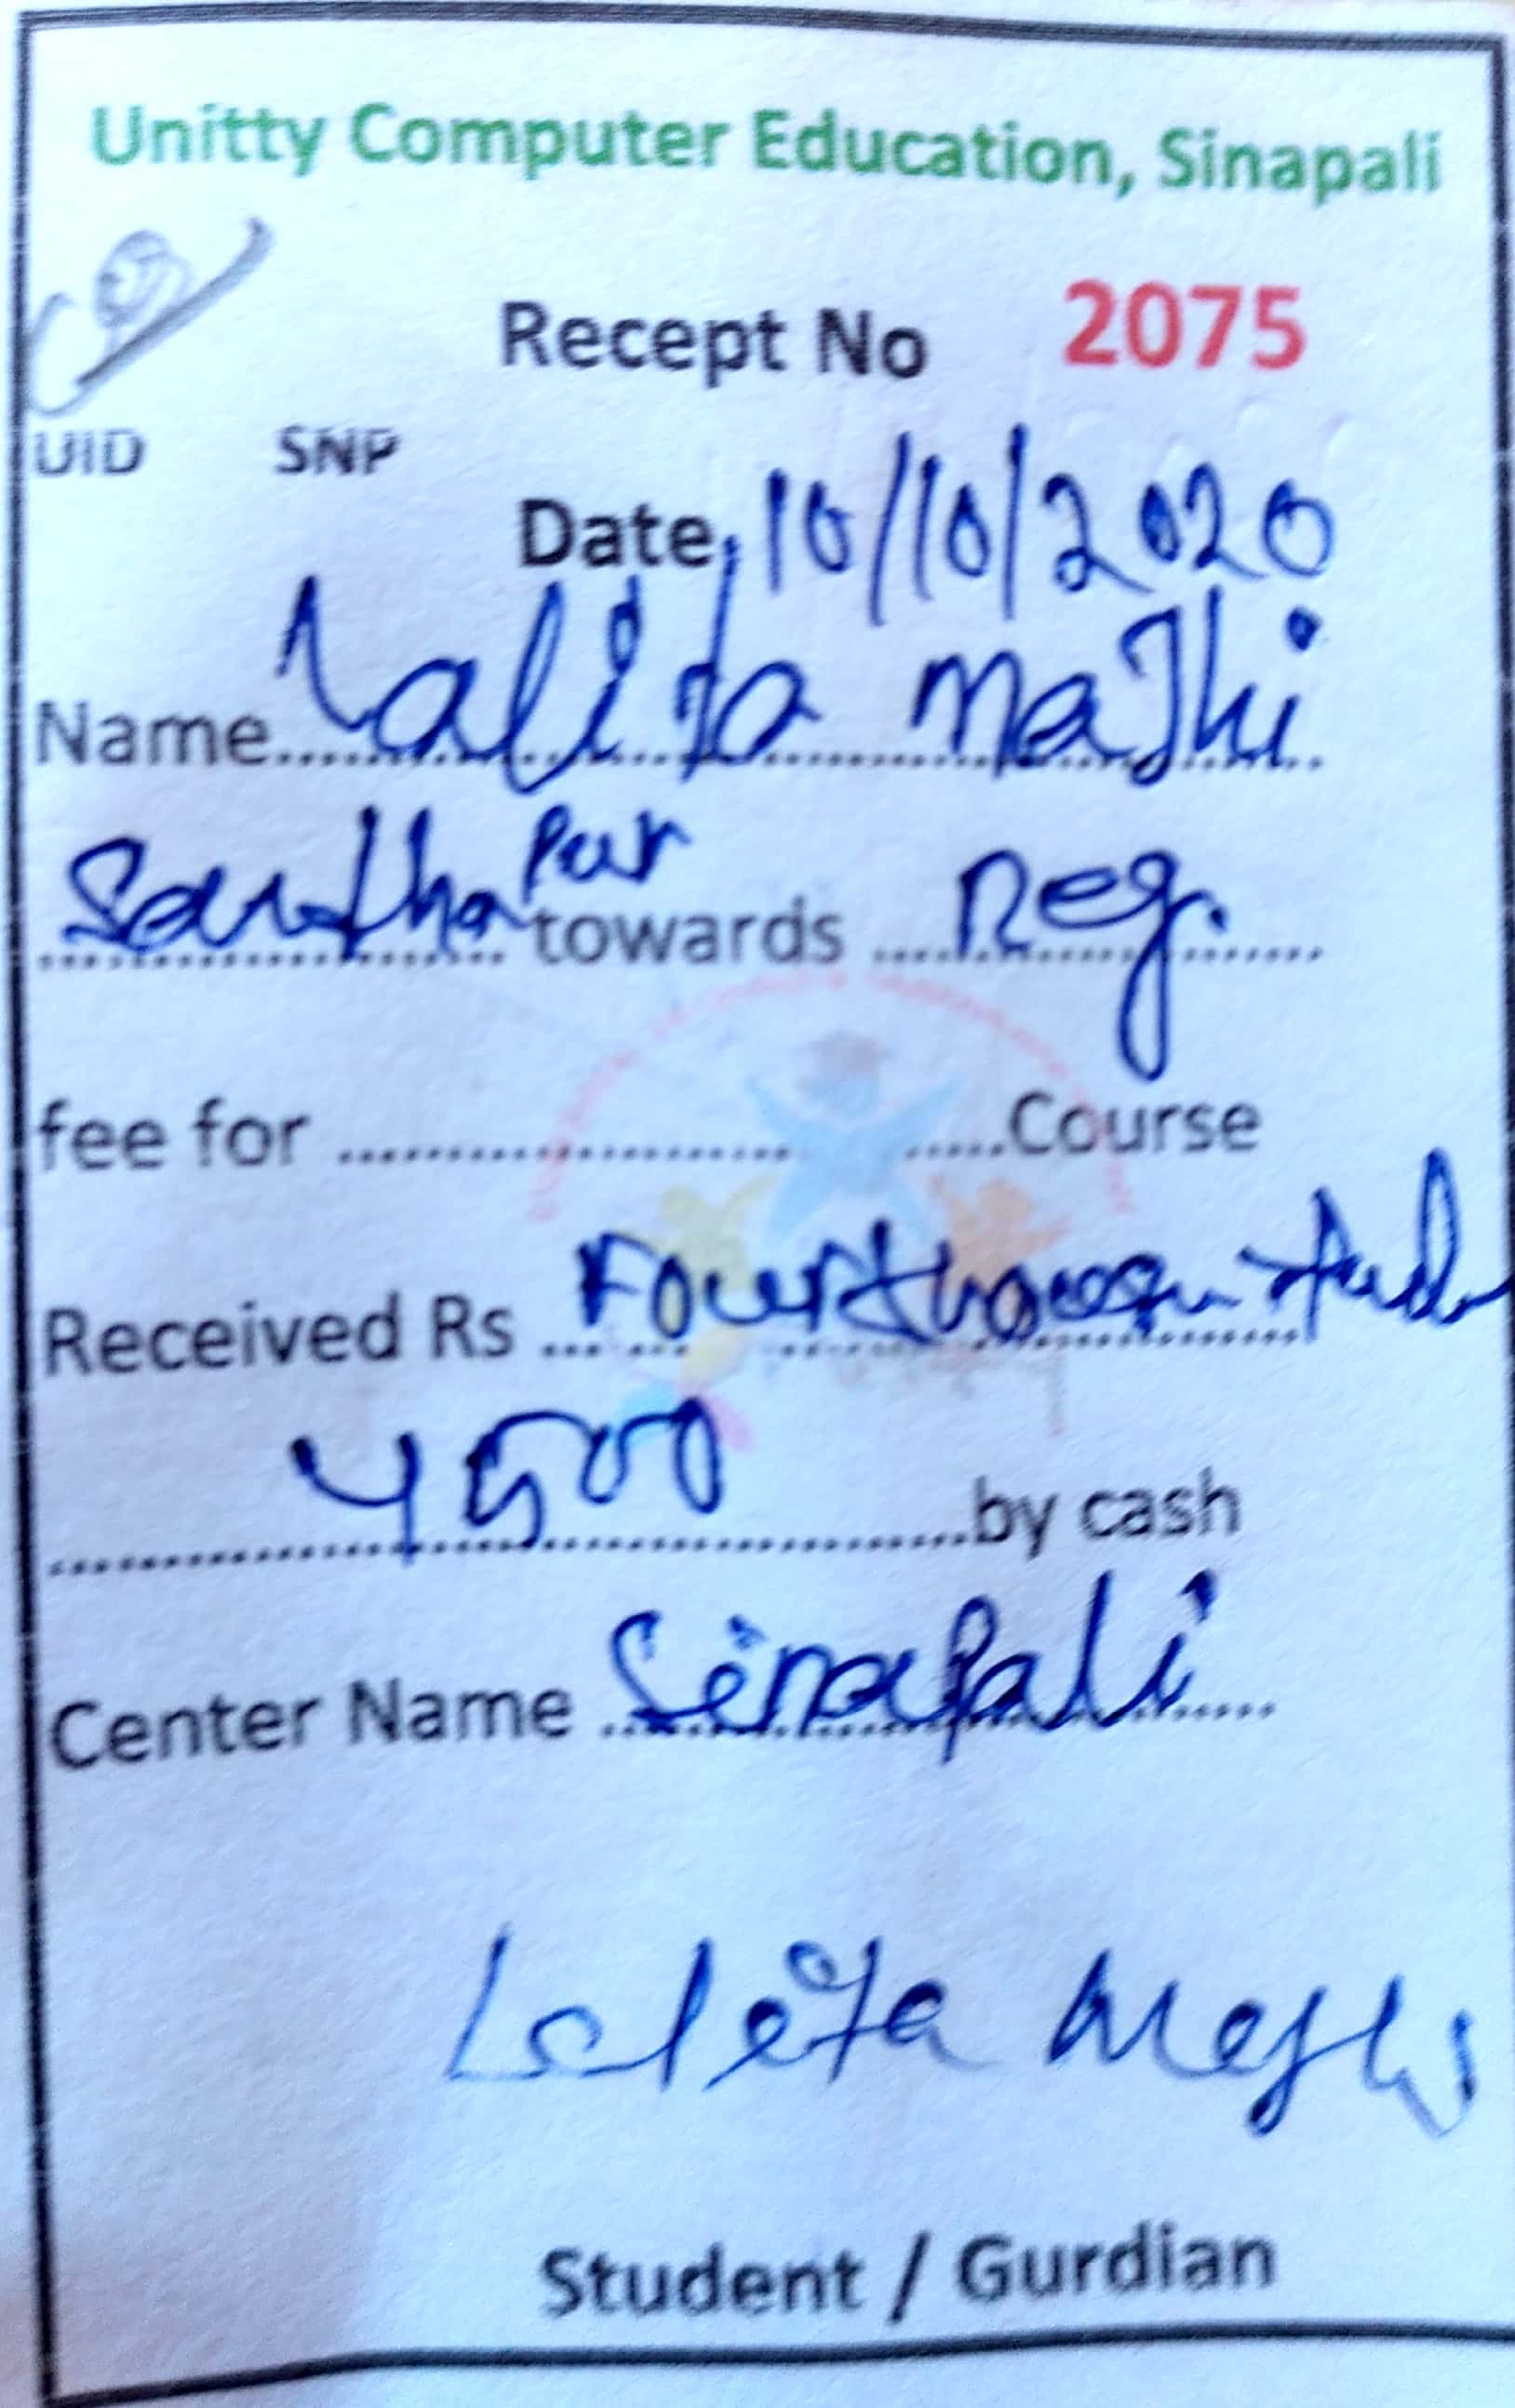 Unitty Computer Education, Sinapali
Recept No 2075
UID SNP
Date, 10/10/2020
Name Lalita Majhi
Pur
towards Reg.
fee for Course
Received Rs Fourthousan
4500 by cash
Center Name Sinapali
Laleta Majhi
Student / Gurdian